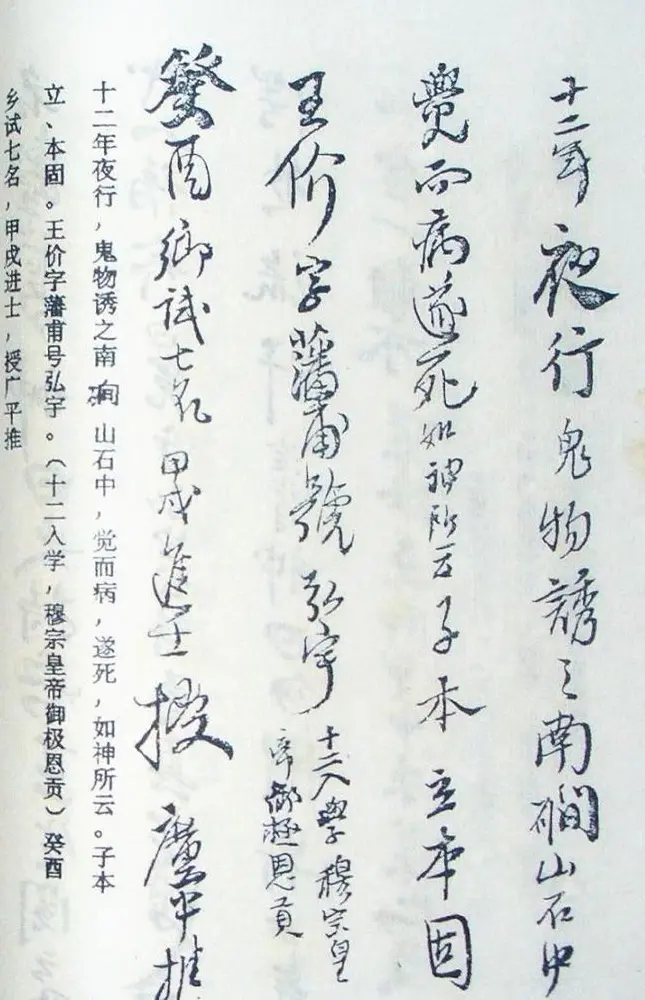 十二年夜行鬼物誘之南磵山石中
覺而病遂死如神所云子本立本固
王价字藩甫號弘宇
十二入學穆宗皇
帝御極恩貢
癸酉鄉試七名甲戌進士授廣平推
十二年夜行，鬼物诱之南磵山石中，觉而病，遂死，如神所云。子本
立、本固。王价字藩甫号弘宇。（十二入学，穆宗皇帝御极恩贡）癸酉
乡试七名，甲戌进士，授广平推